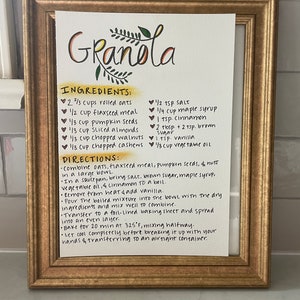 Granola
INGREDIENTS:
2 2/3 cups rolled oats
1/2 cup flaxseed meal
1/3 cup pumpkin seeds
1/3 cup sliced almonds
1/3 cup chopped walnuts
1/3 cup chopped cashews
1/2 tsp salt
1/4 cup maple syrup
1 tsp cinnamon
2 tbsp + 2 tsp brown
sugar
1 tsp. vanilla
1/3 cup vegetable oil
DIRECTIONS:
• Combine oats, flaxseed meal, pumpkin seeds, & nuts
in a large bowl.
• In a saucepan, bring salt, brown sugar, maple syrup,
vegetable oil, & cinnamon to a boil.
• Remove from heat & add vanilla.
• Pour the boiled mixture into the bowl with the dry
ingredients and mix well to combine.
• Transfer to a foil-lined baking sheet and spread
into an even layer.
• Bake for 20 min at 325°F, mixing halfway.
• Let cool completely before breaking it up with your
hands & transferring to an airtight container.